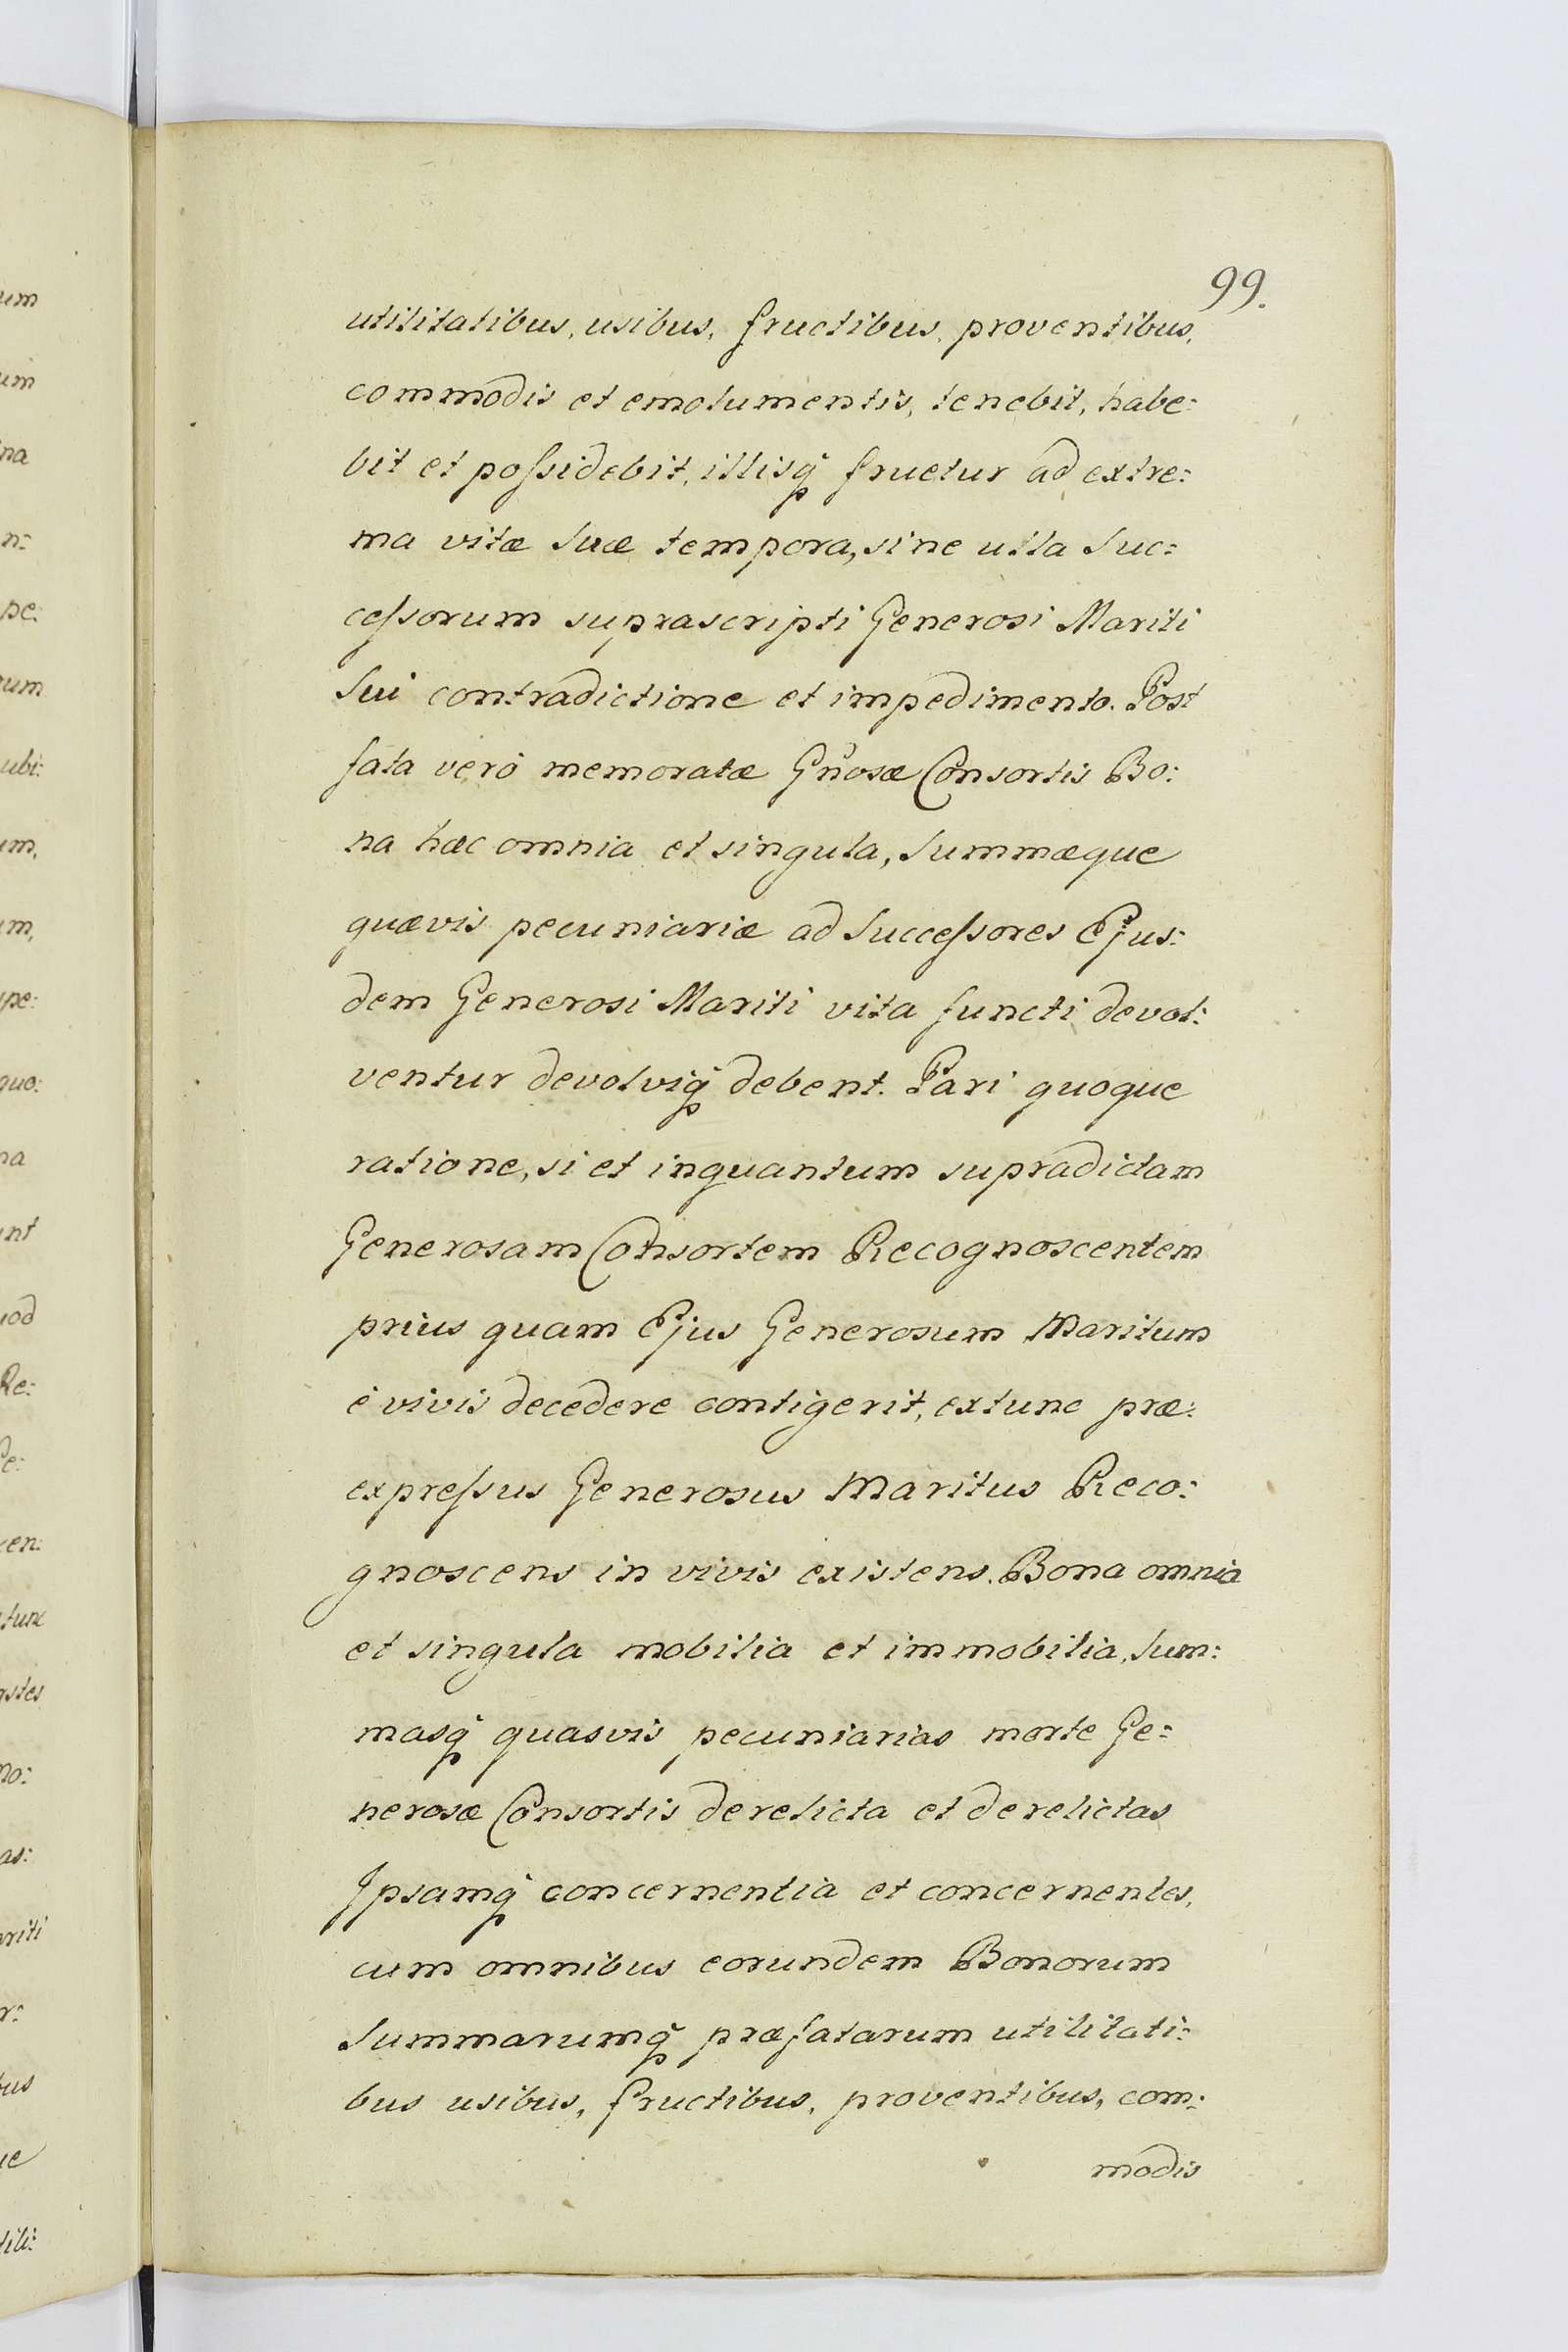 99.
utilitatibus, usibus, fructibus, proventibus,
commodis et emolumentis, tenebit, habe:
bit et poſsidebit, illisq̃ fruetur ad extre:
ma vitæ suæ tempora, sine ulla Suc:
ceſsorum suprascripti Generosi Mariti
Sui contradictione et impedimento. Post
fata verò memoratæ Gñosæ Consortis Bo:
na hæc omnia et singula, Summæque
quævis pecuniariæ ad Succeſsores Ejus:
dem Generosi Mariti vita functi devol:
ventur devolviq̃ debent. Pari quoque
ratione, si et inquantum supradictam
Generosam Consortem Recognoscentem
prius quam Ejus Generosum Maritum
è vivis decedere contigerit, extunc præ:
expreſsus Generosus Maritus Reco:
gnoscens in vivis existens. Bona omnia
et singula mobilia et immobilia, Sum:
masq̃ quasvis pecuniarias morte Ge:
nerosæ Consortis derelicta et derelictas
Ipsamq̃ concernentia et concernentes,
cum omnibus eorundem Bonorum
Summarumq̃ præfatarum utilitati:
bus usibus, fructibus, proventibus, com:
modis
um
um
na
n:
pe:
rum
ubi:
um,
um,
pe:
quo:
na
unt
uod
Re:
en:
tunc
no:
as:
ariti
r:
bus
ue
tili: